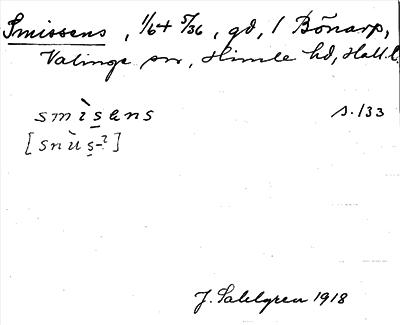 Smissens, 1/64 5/36, gd, i Bönarp,
Valinge sn, Himle hd, Hall. l.
smìsens s. 133
[snùs-?]
J. Sahlgren 1918